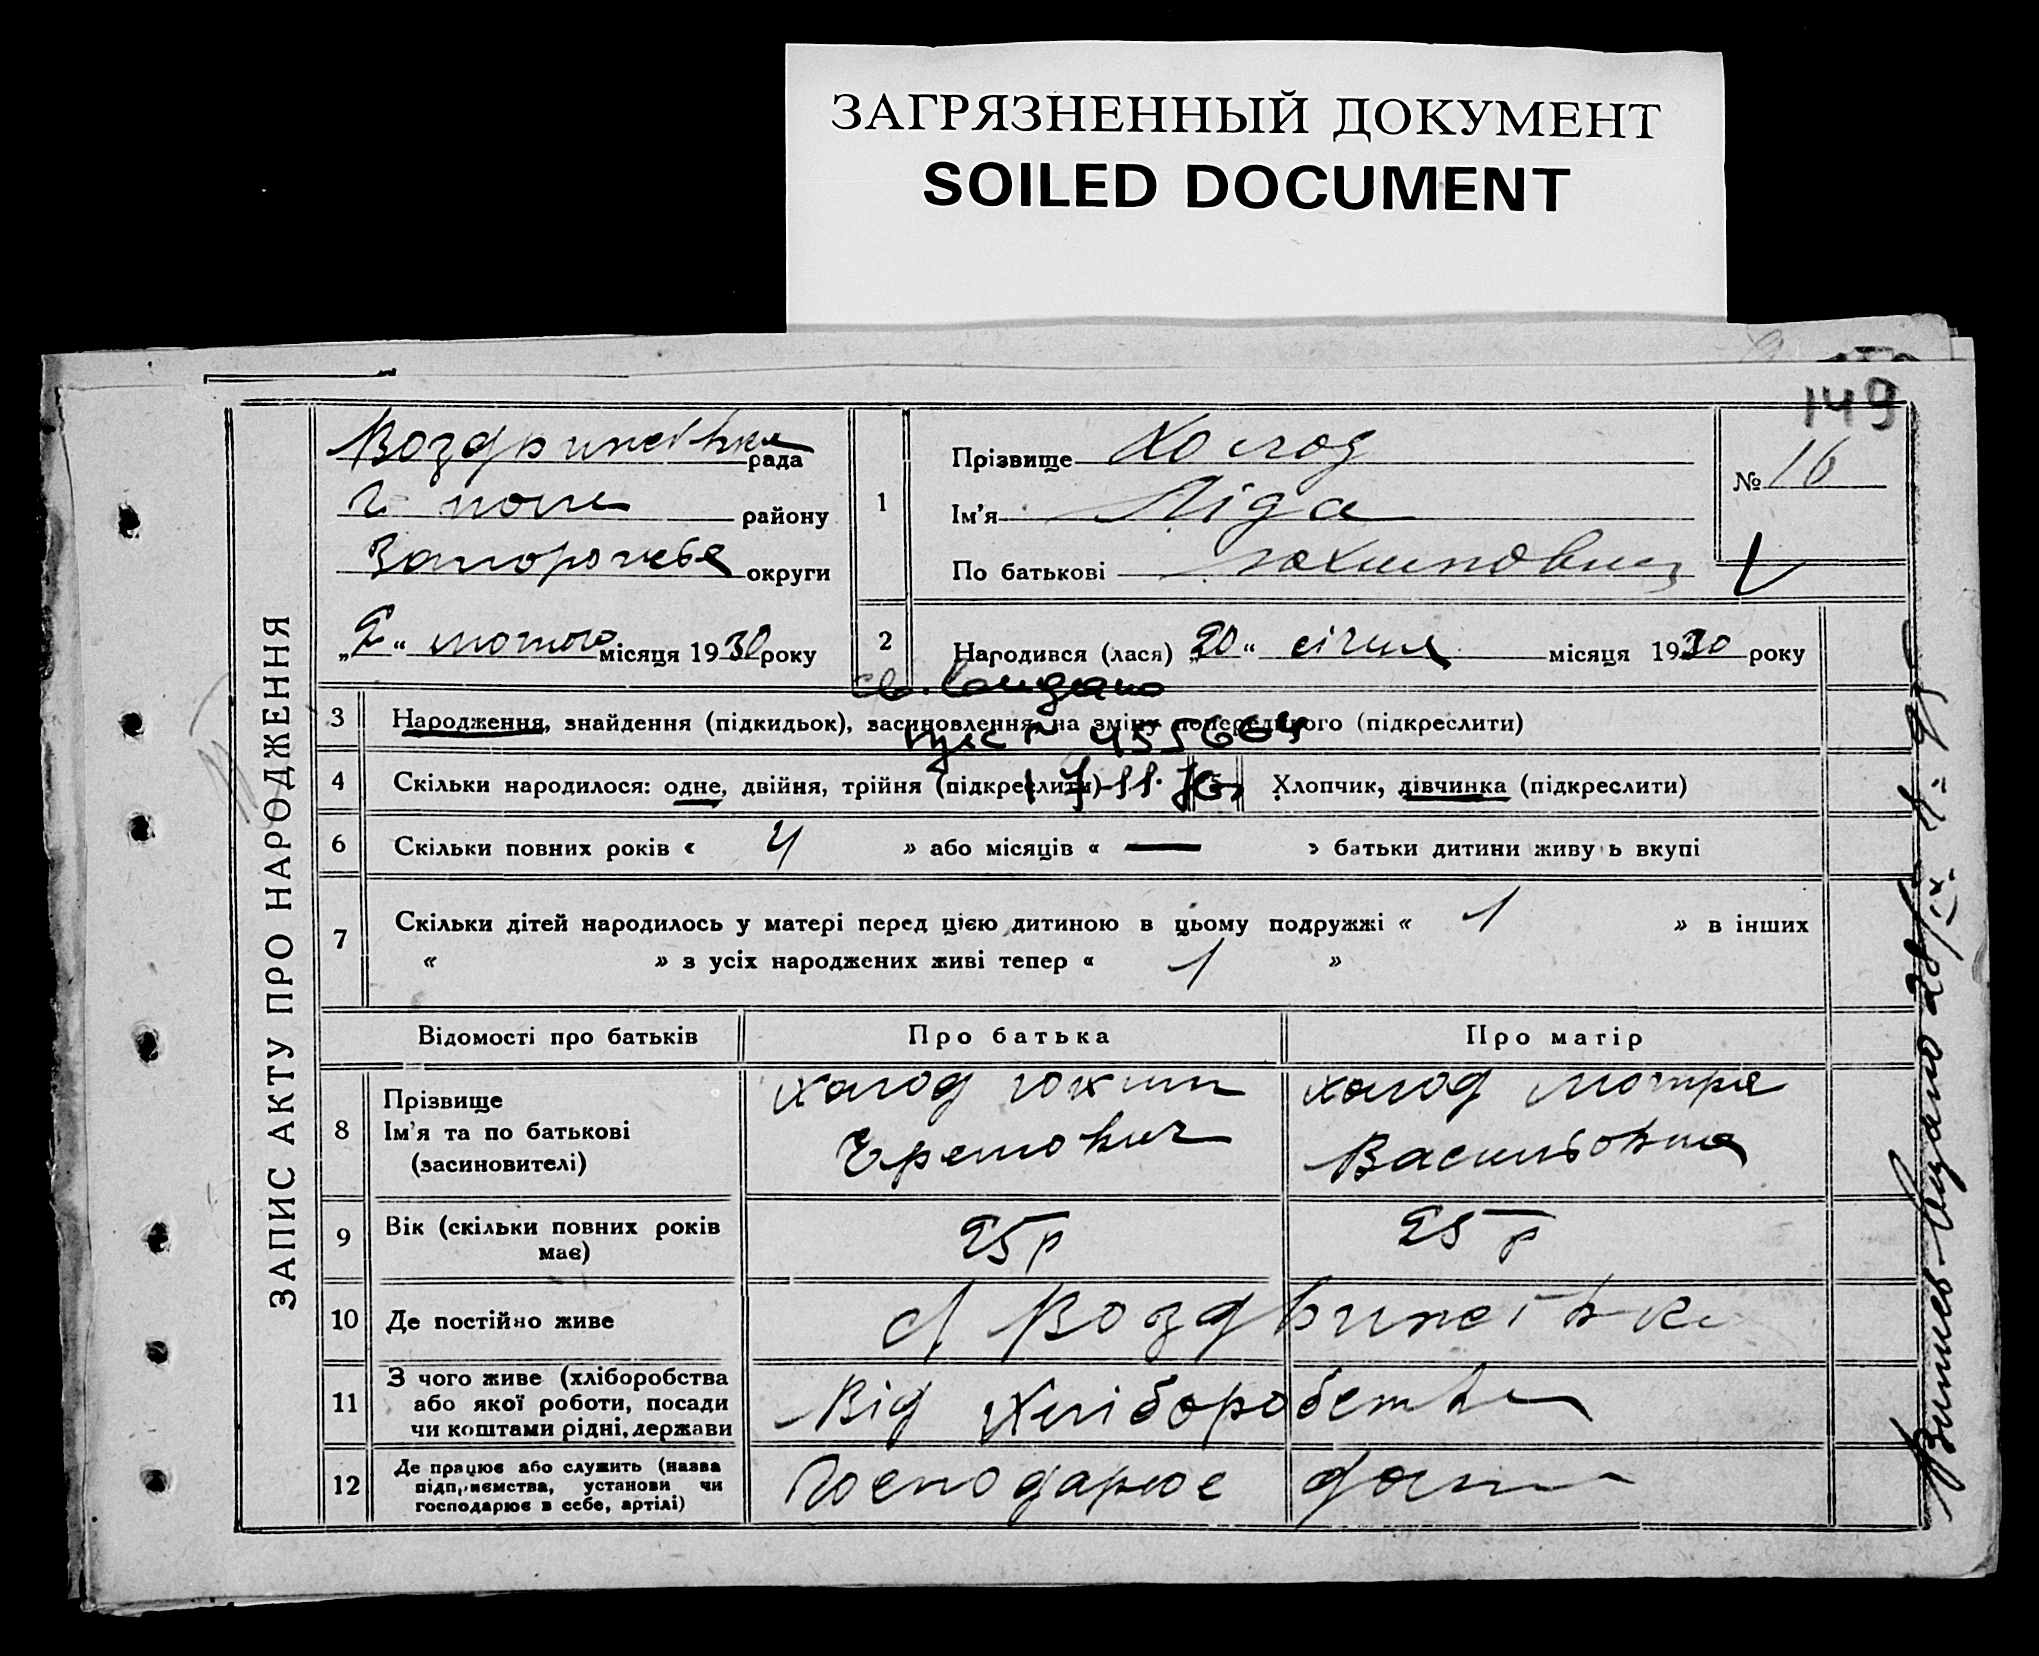 ЗАГРЯЗНЕННЫЙ ДОКУМЕНТ
SOILED DOCUMENT
149
ЗАПИС АКТУ ПРО НАРОДЖЕННЯ
Воздвижевська рада
Г поле району
Запорожжя округи
„2“ лютого місяця 1930 року
1
Прізвище Холод
Ім'я Ліда
По батькові Юхимовна
№ 16
2
Народився (лася) „20“ січня місяця 1930 року
св. выдано
3 Народження, знайдення (підкидьок), засиновлення, на зміну попереднього (підкреслити)
455664
4 Скільки народилося: одне, двійня, трійня (підкреслити) 5 Хлопчик, дівчинка (підкреслити)
6 Скільки повних років « 4 » або місяців « — » батьки дитини живуть вкупі
7 Скільки дітей народилось у матері перед цією дитиною в цьому подружжі « 1 » в інших
« » з усіх народжених живі тепер « 1 »
Відомості про батьків Про батька Про матір
8 Прізвище
Ім'я та по батькові
(засиновителі)
Холод Юхим
Яремович
Холод Мотря
Васильовна
9 Вік (скільки повних років
має)
25 р
25 р
10 Де постійно живе
с Воздвижевка
11 З чого живе (хліборобства
або якої роботи, посади
чи коштами рідні, держави
Від хліборобства
12 Де працює або служить (назва
підприємства, установи чи
господарює в себе, артілі)
Господарює дома
выдано 28/IX